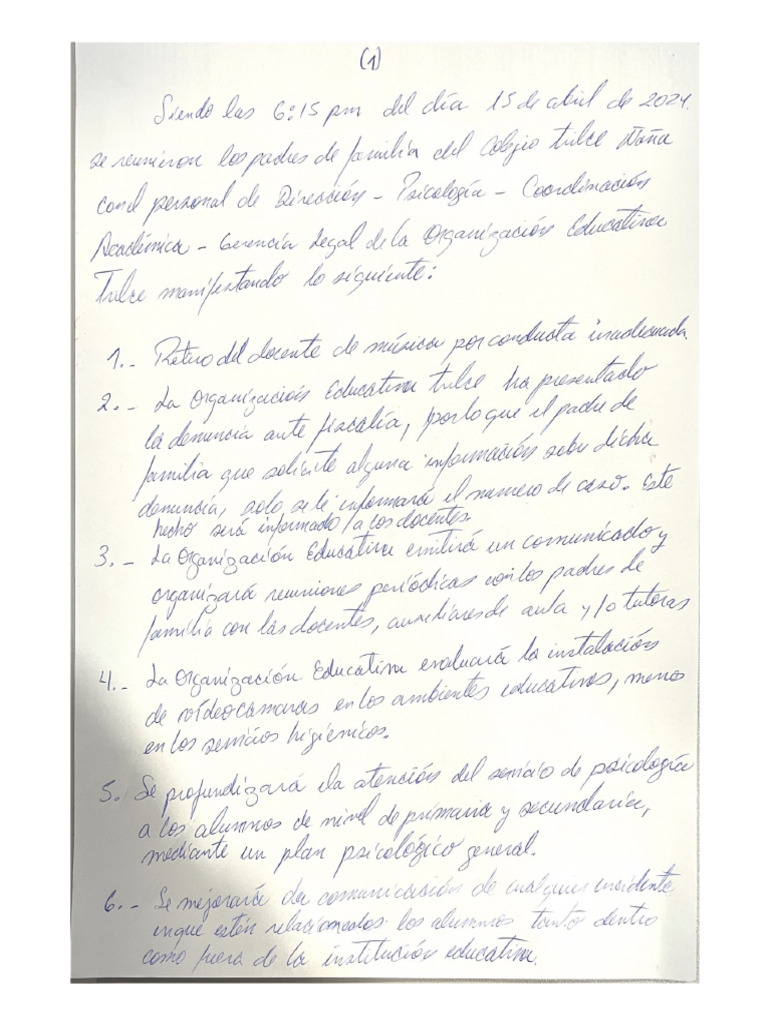 (1)
Siendo las 6:15 pm del día 15 de abril de 2024.
se reunieron los padres de familia del Colegio Trilce Ñaña
con el personal de Dirección - Psicología - Coordinación
Académica - Gerencia Legal de la Organización Educativa
Trilce manifestando lo siguiente:
1.- Retiro del docente de música por conducta inadecuada.
2.- La Organización Educativa Trilce ha presentado
la denuncia ante fiscalía, por lo que el padre de
familia que solicite alguna información sobre dicha
denuncia, solo se le informará el numero de caso. Este
hecho será informado a los docentes.
3.- La Organización Educativa emitirá un comunicado y
organizará reuniones periódicas con los padres de
familia con las docentes, auxiliares de aula y/o tutoras
4.- La Organización Educativa evaluará la instalación
de videocámaras en los ambientes educativos, menos
en los servicios higiénicos.
5. Se profundizará la atención del servicio de psicología
a los alumnos de nivel de primaria y secundaria,
mediante un plan psicológico general.
6.- Se mejorará la comunicación de cualquier incidente
en que estén relacionados los alumnos tanto dentro
como fuera de la institución educativa.